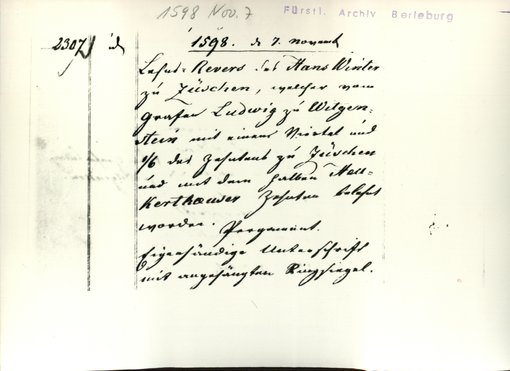 1598 Nov. 7
Fürstl. Archiv Berleburg
2307
1598. d. 7. novemb
Lehns-Revers des Hans Winter
zu Züschen, welcher vom
Grafen Ludwig zu Witgen-
stein mit einem Viertel und
1/6 des Zehntens zu Züschen
und mit dem halben Neu-
Kerkhauser Zehnten belehnt
worden. Pergament.
Eigenhändige Unterschrift
mit angehängten Ringsiegel.